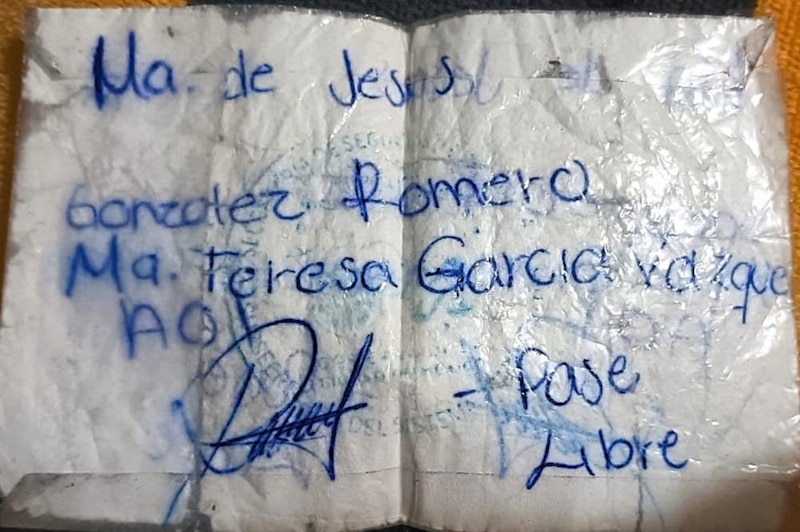 Ma. de Jesus
Gonzalez Romero
Ma. Teresa Garcia Vazque
- Pase
Libre